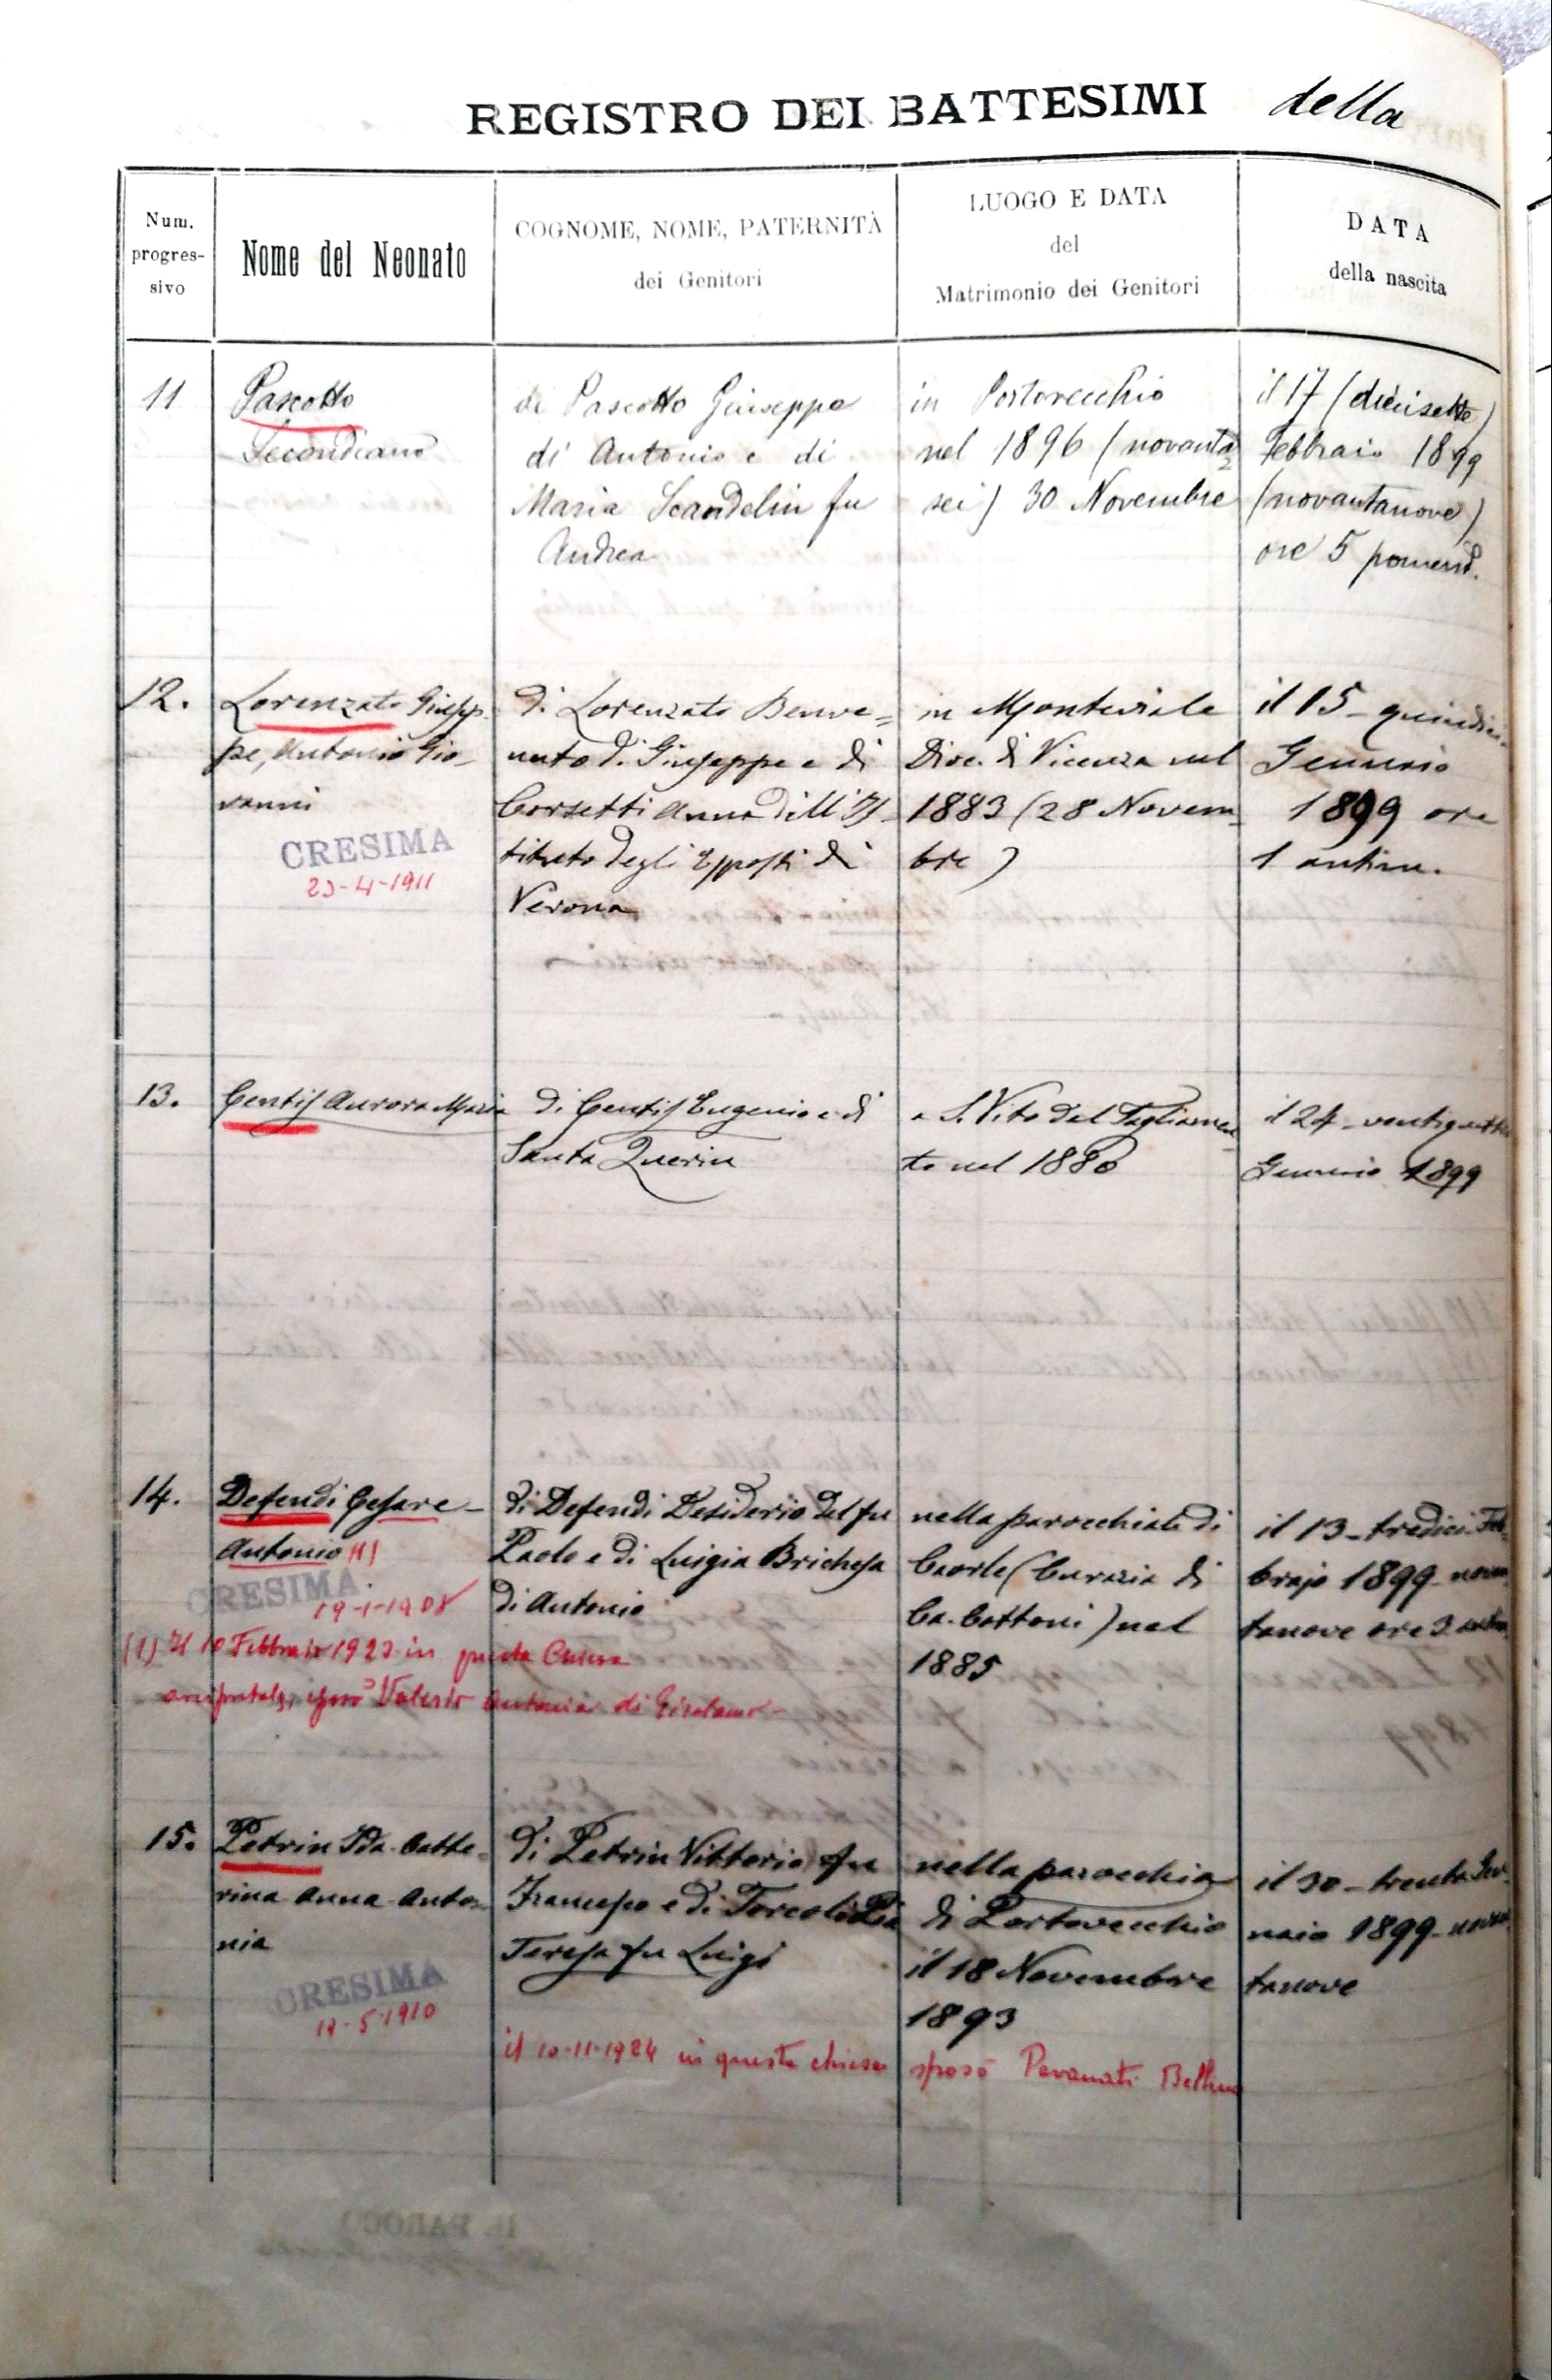 REGISTRO DEI BATTESIMI della
Num.
progres-
sivo
Nome del Neonato
COGNOME, NOME, PATERNITÀ
dei Genitori
LUOGO E DATA
del
Matrimonio dei Genitori
DATA
della nascita
11
Pascotto
Secondiano
di Pascotto Giuseppe
di Antonio e di
Maria Scandelin fu
Andrea
in Portovecchio
nel 1896 (novanta
sei) 30 Novembre
il 17 (diecisette)
Febbraio 1899
(novantanove)
ore 5 pomerid.
12.
Lorenzato Giusep-
pe, Antonio Gio-
vanni
CRESIMA
23-4-1911
di Lorenzato Benve=
nuto di Giuseppe e di
Corsetti Anna dell' Is-
tituto degli Esposti di
Verona
in Monteviale
Dioc. di Vicenza nel
1883 (28 Novem-
bre)
il 15 - quindici -
Gennaio
1899 ore
1 antim.
13.
Centis Aurora Maria
di Centis Eugenio e di
Santa Querin
a S. Vito del Tagliamen
to nel 1880
il 24 - ventiquattro
Gennaio 1899
14.
Defendi Cesare -
Antonio (1)
CRESIMA
19-1-1908
di Defendi Desiderio del fu
Paolo e di Luigia Brichesa
di Antonio
nella parocchiale di
Caorle (Curazia di
Ca-Cottoni) nel
1885
il 13 - tredici Feb-
brajo 1899 - novan
tanove ore 3 antim.
(1) Il 10 Febbraio 1923 in questa Chiesa
arcipretale, sposò Valerio Antonia di Girolamo
15.
Petrin Ida - Catte-
rina Anna - Anto-
nia
CRESIMA
19-5-1910
di Petrin Vittorio fu
Francesco e di Torcoli Pia
Teresa fu Luigi
nella parocchia
di Portovecchio
il 18 Novembre
1893
il 30 - trenta Gen-
naio 1899 - novan
tanove
il 10-11-1924 in questa chiesa sposò Pavanati Bellino